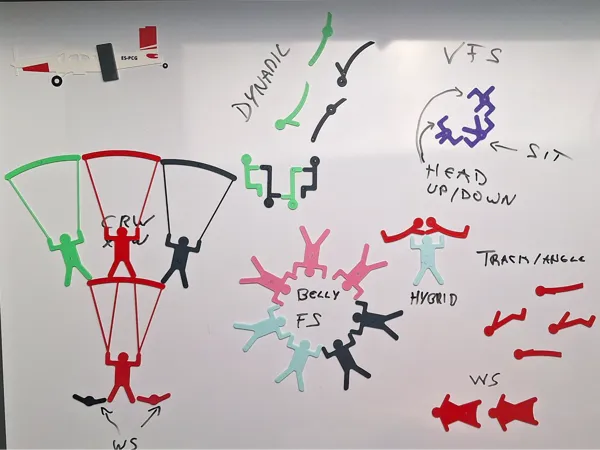 ES-PCG
DYNADIC
VFS
SIT
HEAD
UP/DOWN
CRW
BELLY
FS
HYBRID
TRACK/ANGLE
WS
WS